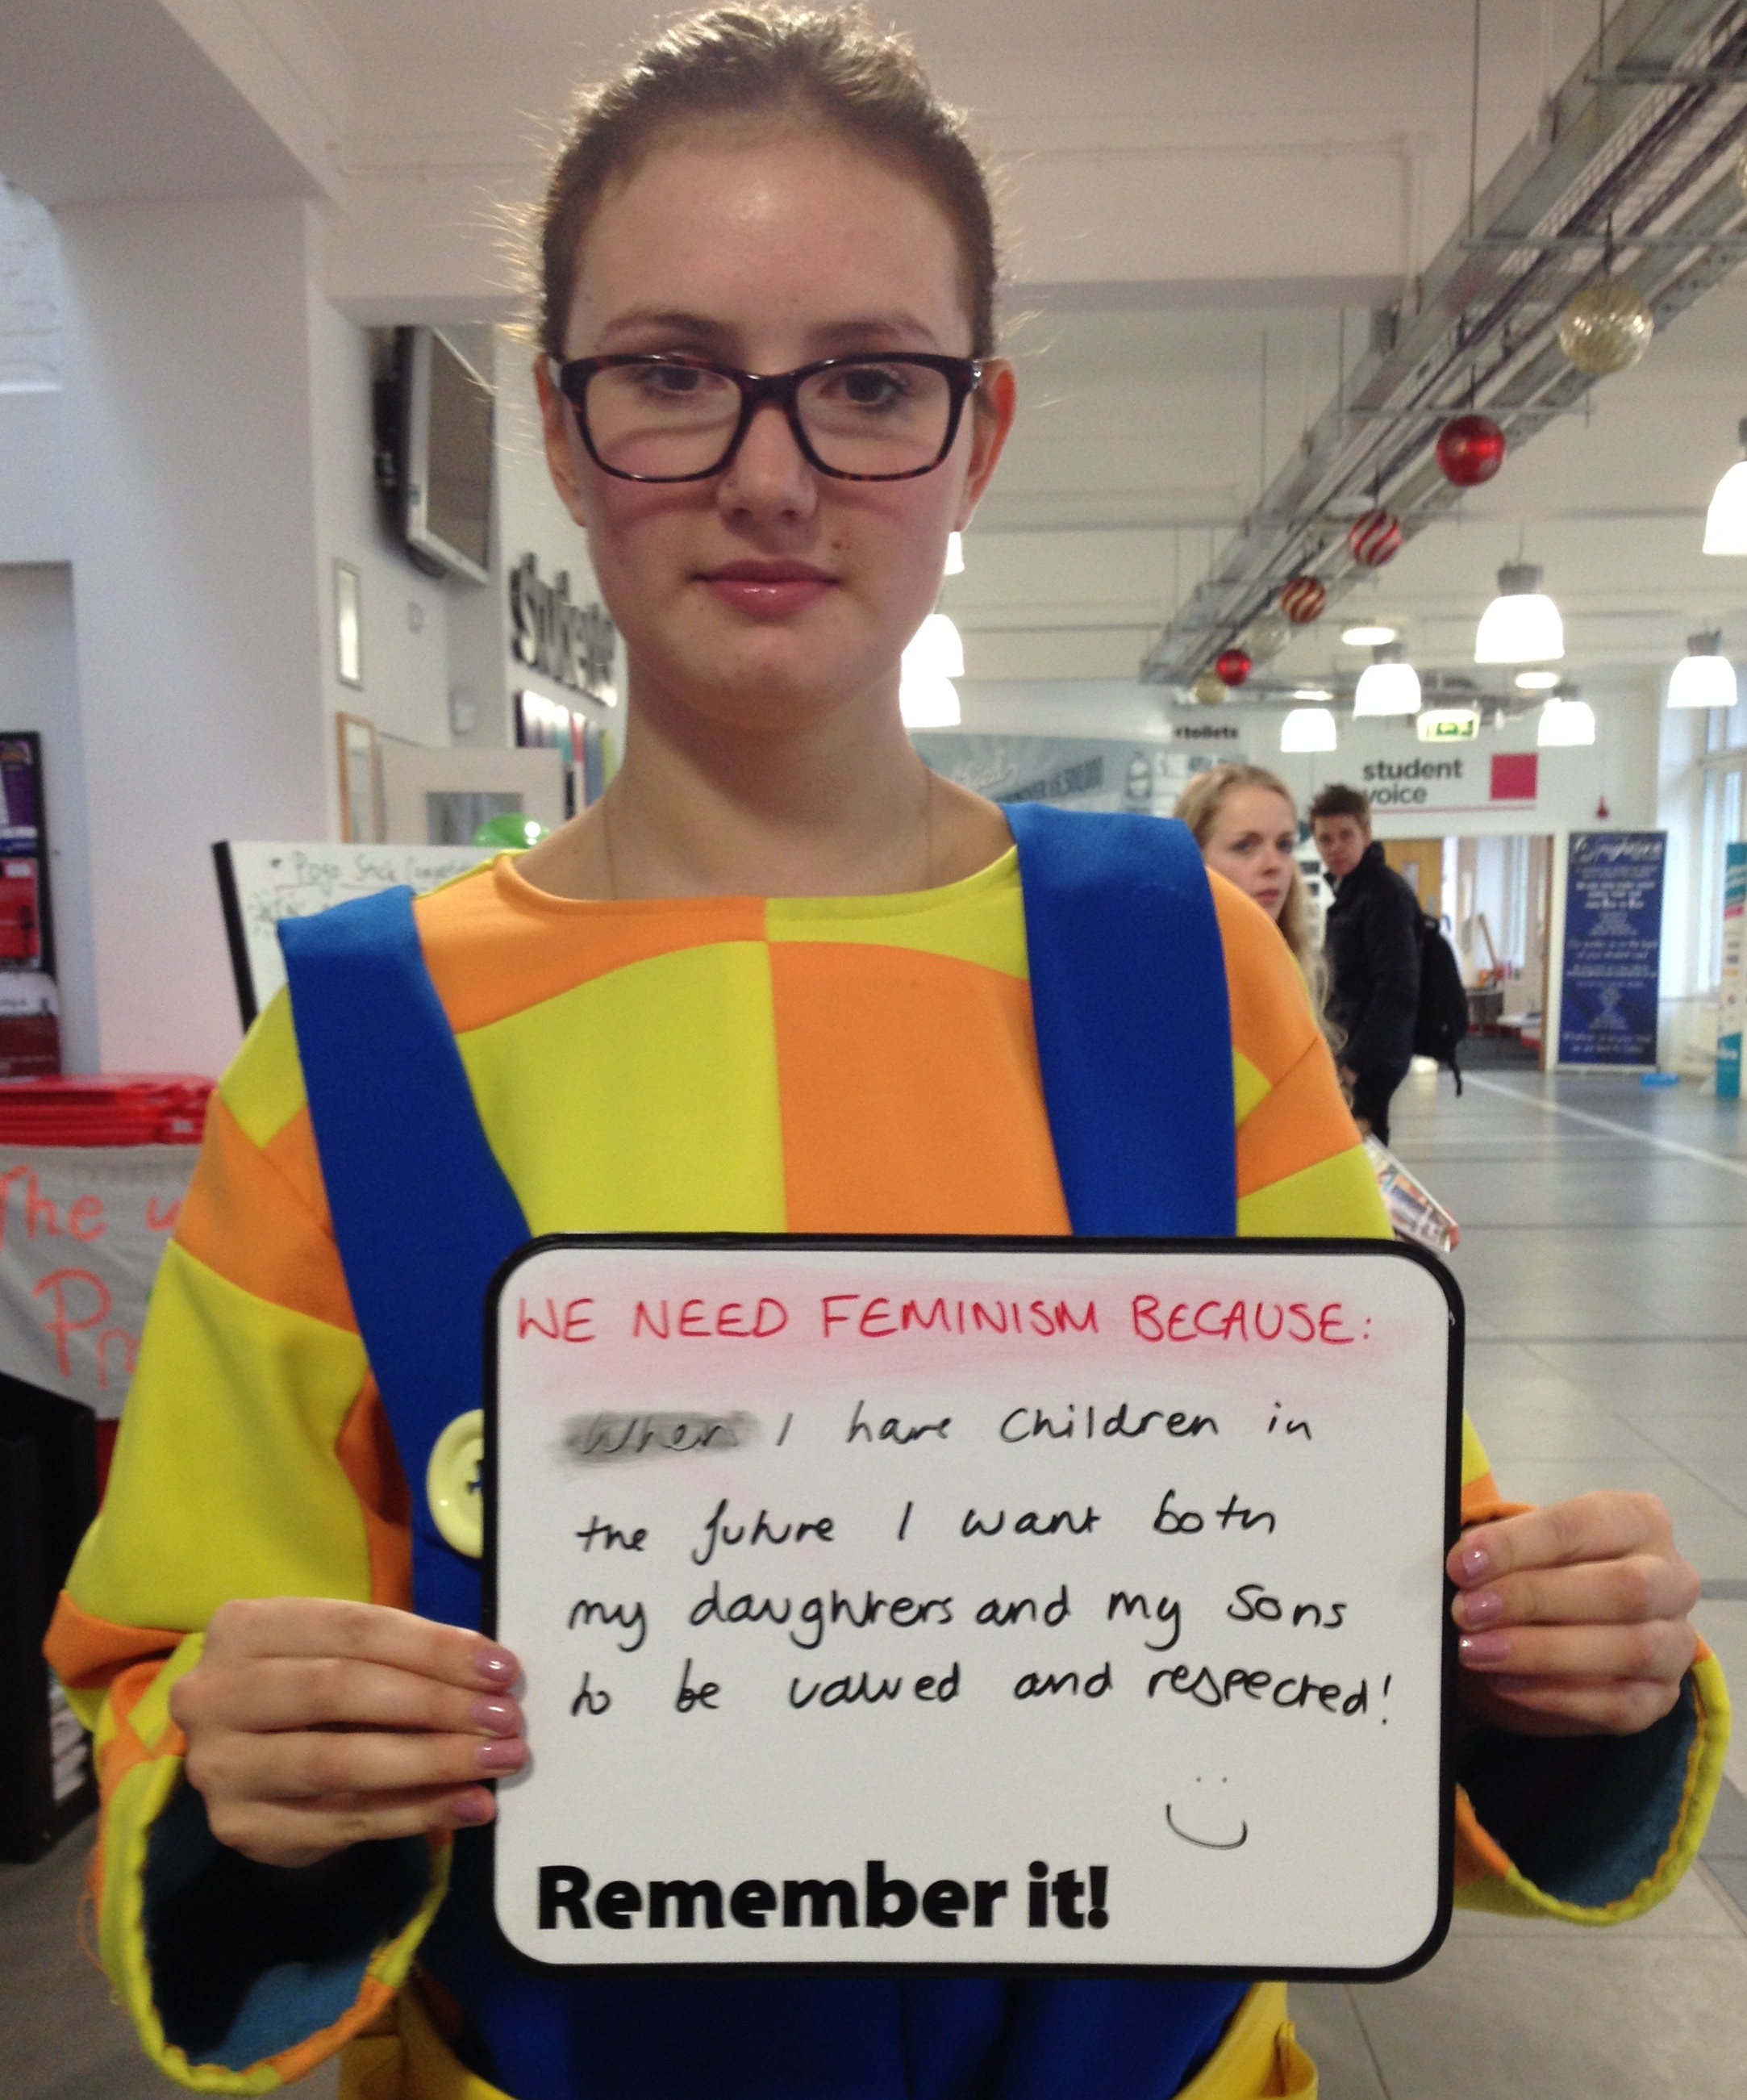 toilets
student
voice
Pogo Stick
The
WE NEED FEMINISM BECAUSE:
When I have children in
the future I want both
my daughters and my sons
to be valued and respected!
Remember it!